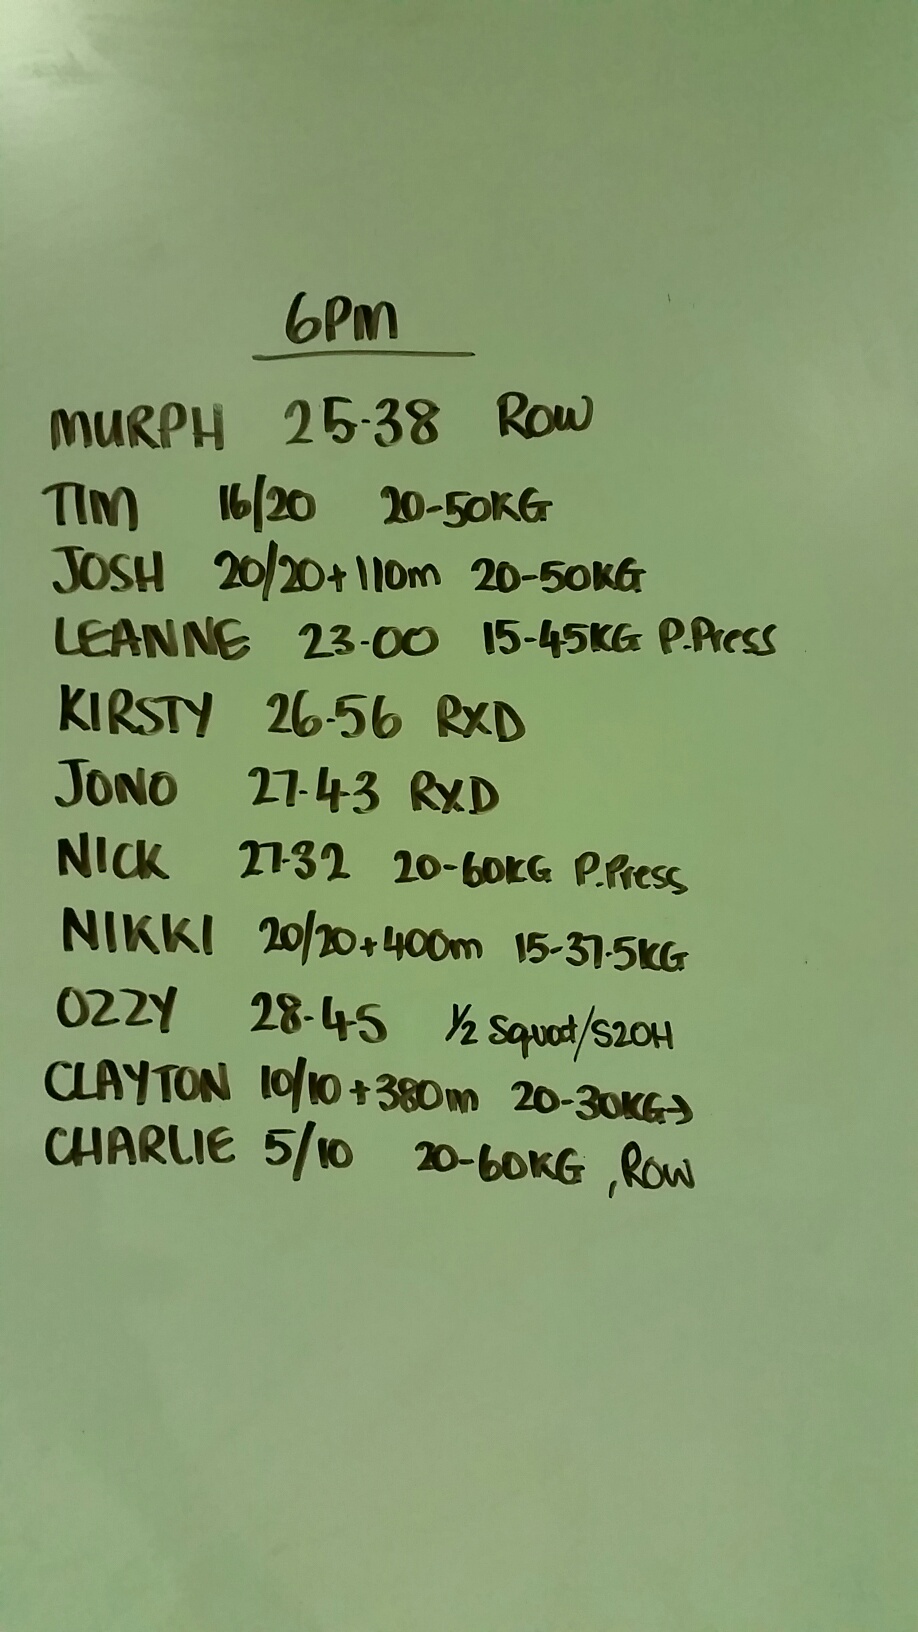 6PM
MURPH 25-38 ROW
TIM 16/20 20-50KG
JOSH 20/20+110m 20-50KG
LEANNE 23-00 15-45KG P.Press
KIRSTY 26-56 RXD
JONO 27-43 RXD
NICK 27-32 20-60KG P.Press
NIKKI 20/20+400m 15-37.5KG
OZZY 28-45 1/2 Squat/S2OH
CLAYTON 10/10+380m 20-30KG→
CHARLIE 5/10 20-60KG , ROW